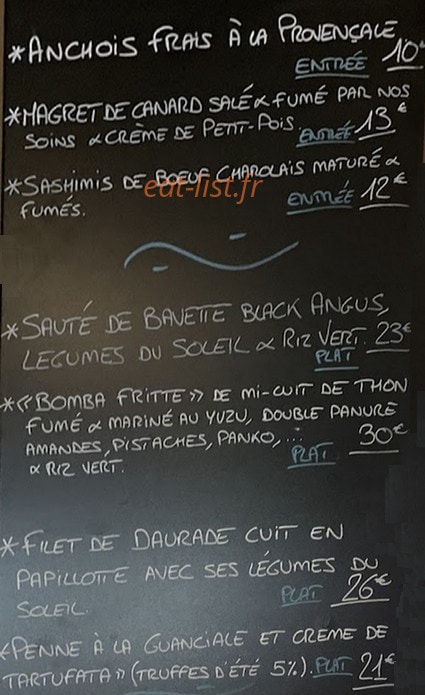 *ANCHOIS FRAIS À LA PROVENÇALE
ENTRÉE 10€
*MAGRET DE CANARD SALÉ & FUMÉ PAR NOS
SOINS & CRÈME DE PETIT-POIS. ENTRÉE 13€
*SASHIMIS DE BOEUF CHAROLAIS MATURÉ &
FUMÉS. ENTRÉE 12€
eat-list.fr
*SAUTÉ DE BAVETTE BLACK ANGUS,
LEGUMES DU SOLEIL & RIZ VERT. 23€
PLAT
*«BOMBA FRITTE» DE MI-CUIT DE THON
FUMÉ & MARINÉ AU YUZU, DOUBLE PANURE
AMANDES, PISTACHES, PANKO,... 30€
& RIZ VERT. PLAT
*FILET DE DAURADE CUIT EN
PAPILLOTTE AVEC SES LÉGUMES DU
SOLEIL. PLAT 26€
*PENNE À LA GUANCIALE ET CREME DE
TARTUFATA» (TRUFFES D'ÉTÉ 5%). PLAT 21€